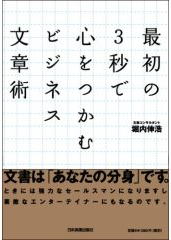 最初の
3秒で
心をつかむ
ビジネス
文章術
文章コンサルタント
堀内伸浩
文書は「あなたの分身」です。
ときには強力なセールスマンになりますし
素敵なエンターテイナーにもなるのです。
日本実業出版社